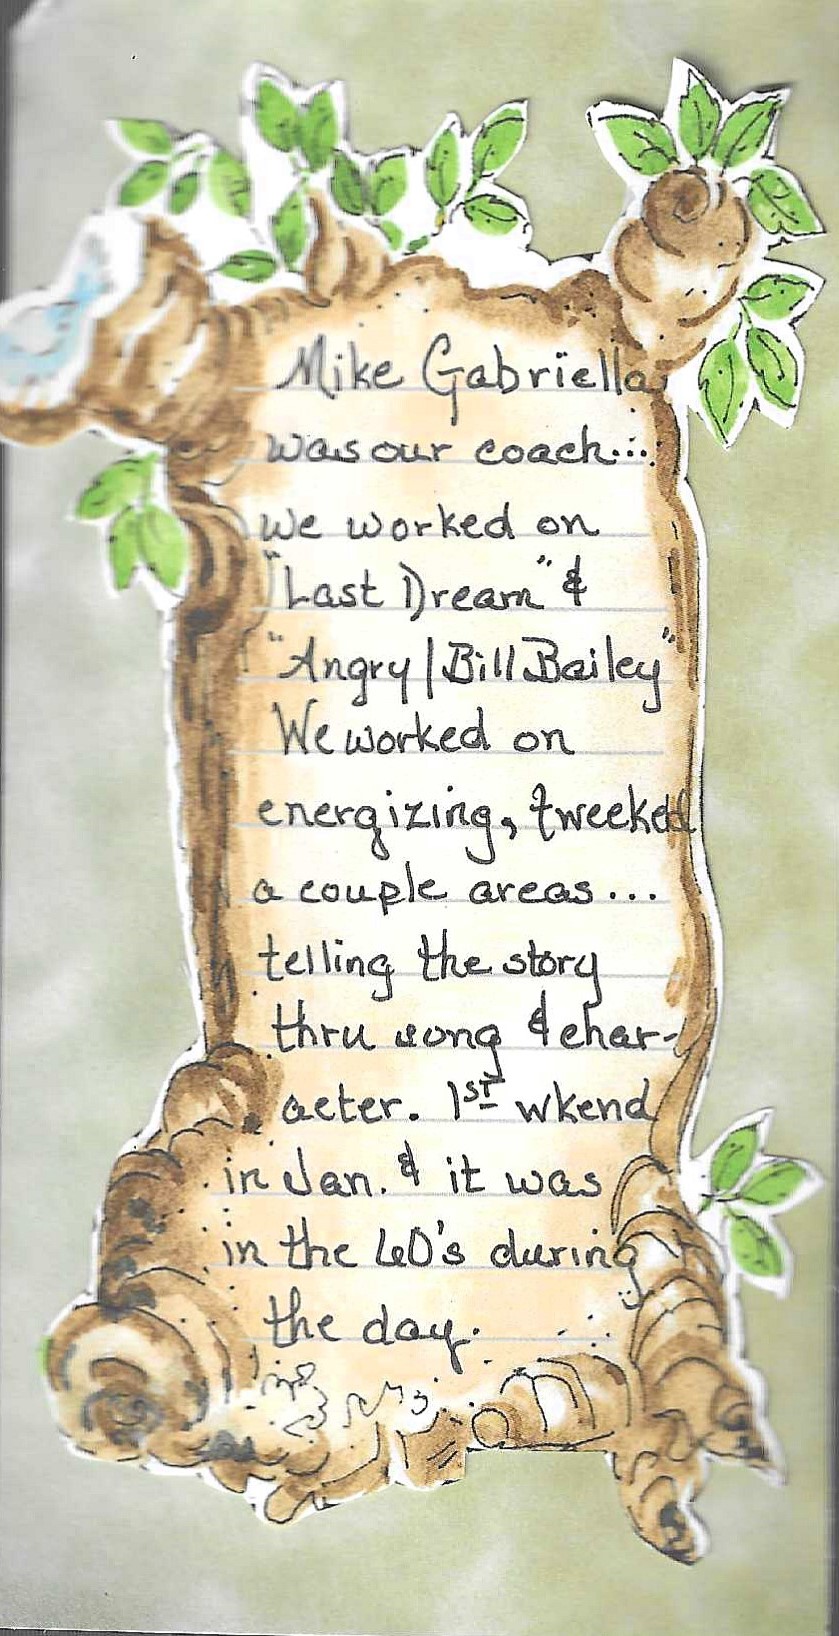 Mike Gabriella
was our coach...
we worked on
"Last Dream" &
"Angry/Bill Bailey"
We worked on
energizing, tweeked
a couple areas...
telling the story
thru song & char-
acter. 1st wkend
in Jan. & it was
in the 60's during
the day.